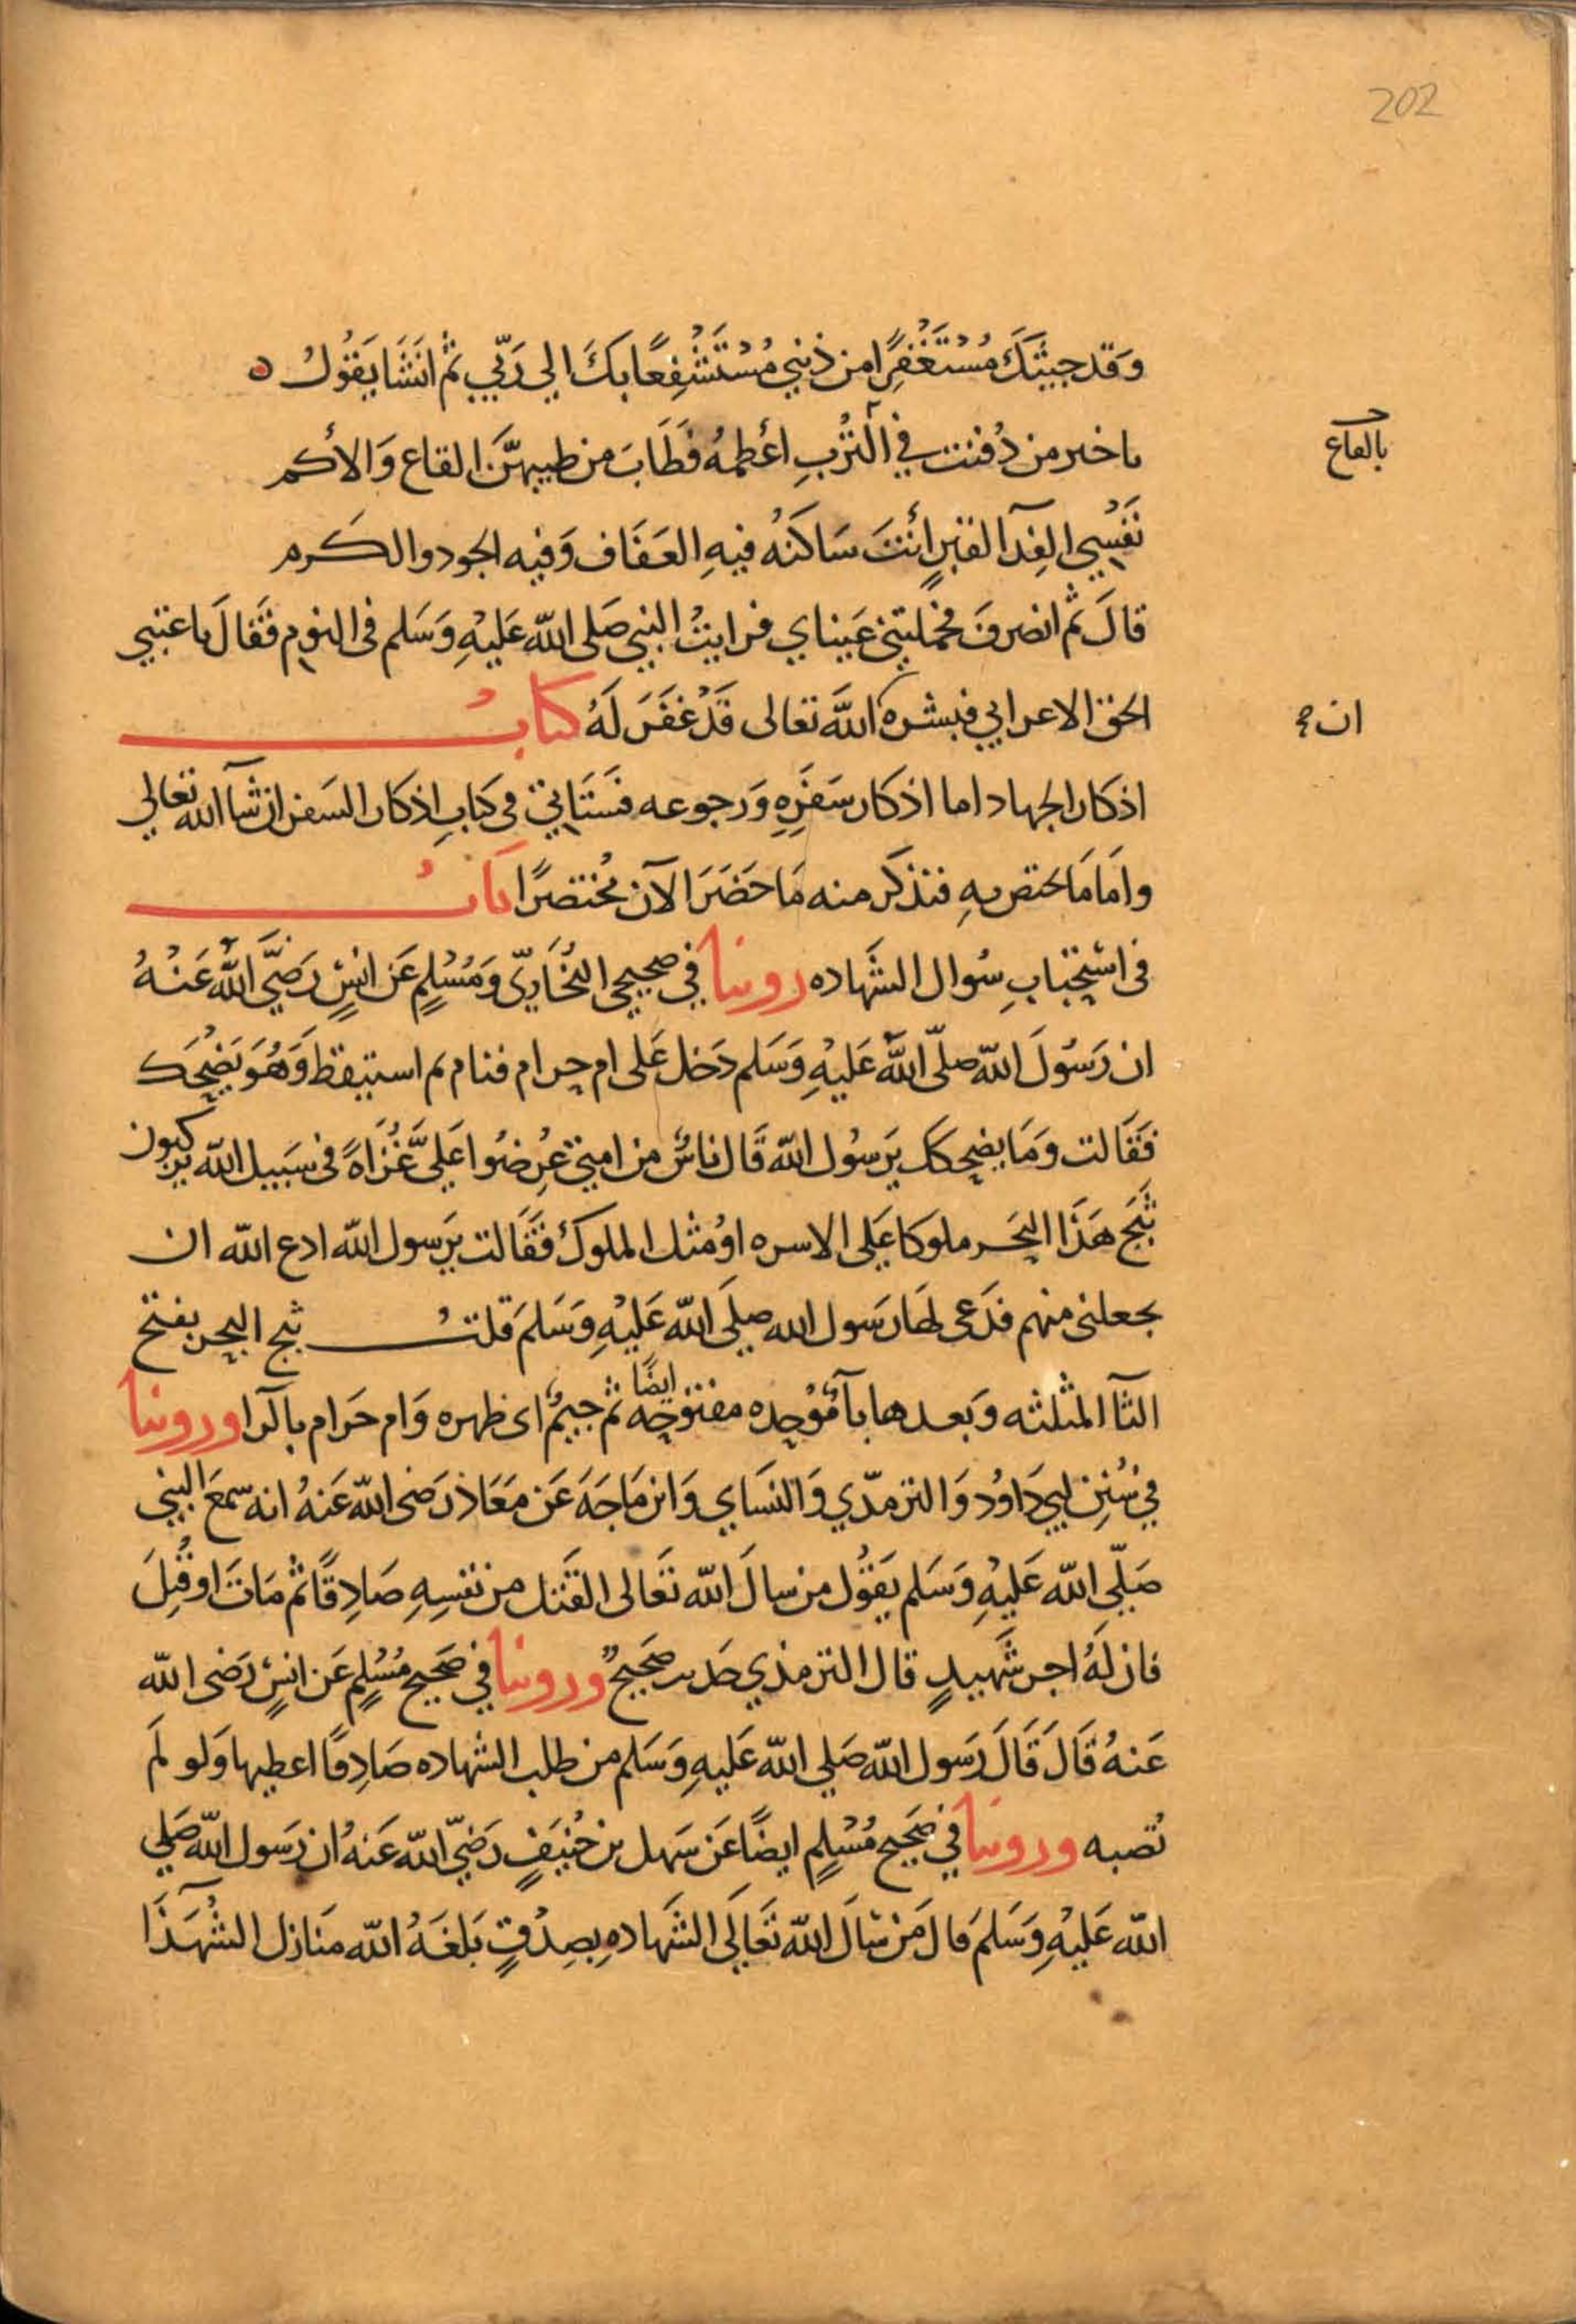 202
وَقَد جِيتَكَ مُسْتَغْفِرًا من ذنبي مُسْتَشْفِعًا بكَ الي رَبّي ثم انشَا يَقُولُ ه
ياخير من دُفنت في التُربِ اعْظمهُ فَطَابَ من طيبهنَّ القاع وَالاكم
بالقاع
نَفْسِي الفِدآ القبرٍ أنتَ سَاكنهُ فيهِ العَفَاف وَفيه الجود والكَرم
قالَ ثم انصرفَ فحملتني عَيناي فرايتُ النبي صَلى الله عَليْهِ وَسَلم في النوم فَقَالَ يا عتبي
الحق الاعرابي فبشره الله تعالى قَدْ غفَرَ لَهُ كتابُ
ان
اذكار الجهاد اما اذكار سَفَرِهِ وَرجوعه فسَتَاتي في كتابِ اذكار السَفر ان شآ الله تعالي
وامَا مَا يختص بهِ فنذكر منه مَا حَضَرَ الآن مُختصرًا بابُ
في اسْتحبَابِ سُوال الشَهاده روينا في صحيحي البُخَاريّ وَمُسْلمٍ عَن انسٍ رَضيَ اللهُ عَنْهُ
ان رَسُولَ الله صلّى اللهُ عَليْهِ وَسَلم دَخل عَلى ام حرام فنام ثم استيقظ وَهُوَ يَضْحك
فَقَالت وَمَا يضحكك يَرسُول الله قَال ناسٌ من امتي عُرِضُوا عَليَّ غُزَاةً في سَبيل الله يركبون
ثَبَج هَذَا البَحَر ملوكا عَلى الاسره اوْ مثل الملوك فَقَالت يَرسول الله ادع الله ان
يجعلني منهم فدَعى لهَا رَسول الله صلَى الله عَليْهِ وَسَلمَ قلتُ ثبج البحر بفتح
الثآ المثلثه وَبعدها بآ مُوْحده مفتوْحه ايضًا ثم جيمٌ اى ظهره وَام حَرام بالرا وروينا
في سُنن ابي دَاوُد وَالترمذي وَالنسَاي وَابن مَاجَهَ عَن مَعَاذ رَضى الله عَنهُ انه سمعَ النبي
صَلّى الله عَليْهِ وَسَلم يَقُول من سالَ الله تعَالى القَتل من نفسِهِ صَادِقًا ثم مَاتَ او قُتِلَ
فان لَهُ اجر شَهيدٍ قال الترمذي حديث صَحيحٌ وروينا في صَحيح مُسْلمٍ عَن انسٍ رَضى الله
عَنهُ قَالَ قَالَ رَسول الله صَلي الله عَليهِ وَسَلم من طلب الشهاده صَادِقًا اعطيها وَلو لَم
تُصبه وروينا في صَحيح مُسْلمٍ ايضًا عَن سَهل بن حُنيَفٍ رَضيَ الله عَنهُ ان رَسول الله صَلي
الله عَليْهِ وَسَلمَ قالَ مَن سَالَ الله تَعَالَى الشَهادهِ بصِدْقٍ بَلغَهُ الله مَنازل الشُهَدَا